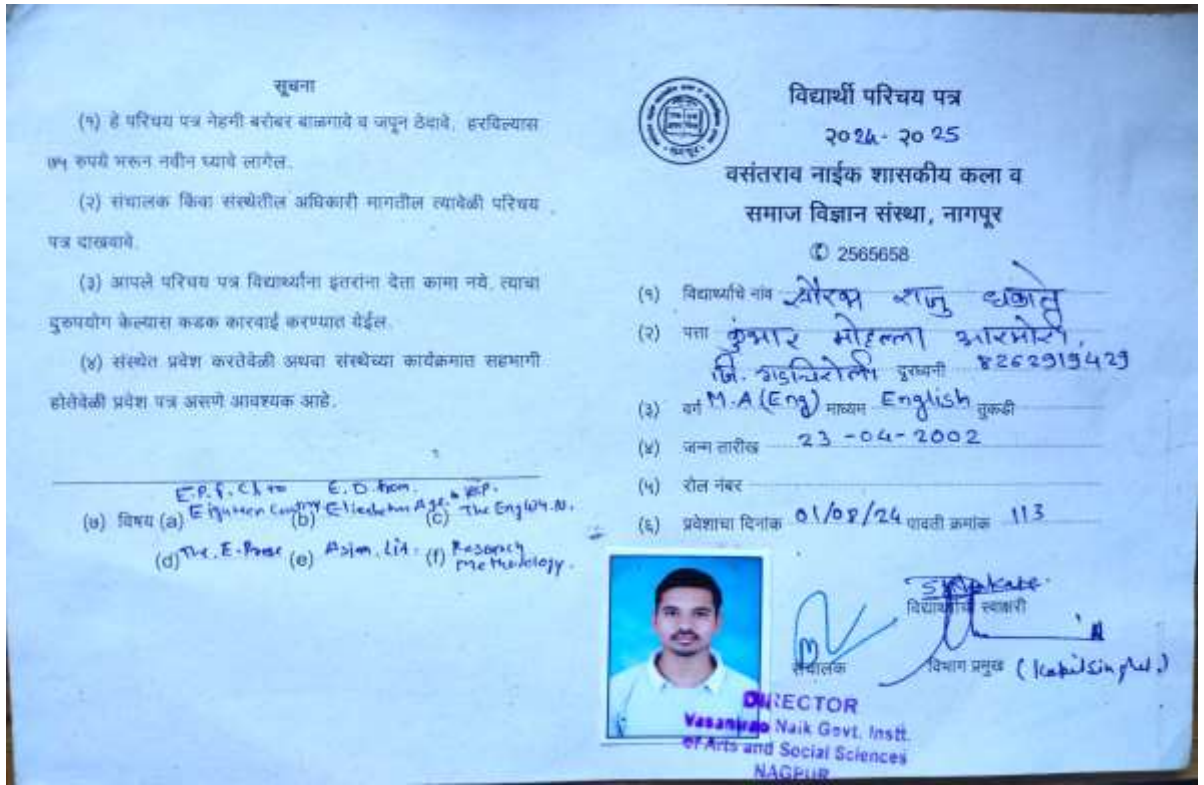 सूचना
(१) हे परिचय पत्र नेहमी बरोबर बाळगावे व जपून ठेवावे. हरविल्यास
७५ रुपये भरून नवीन घ्यावे लागेल.
(२) संचालक किंवा संस्थेतील अधिकारी मागतील त्यावेळी परिचय
पत्र दाखवावे.
(३) आपले परिचय पत्र विद्यार्थ्यांना इतरांना देता कामा नये. त्याचा
दुरुपयोग केल्यास कडक कारवाई करण्यात येईल.
(४) संस्थेत प्रवेश करतेवेळी अथवा संस्थेच्या कार्यक्रमात सहभागी
होतेवेळी प्रवेश पत्र असणे आवश्यक आहे.
(७) विषय (a) (b) (c) The
(d) The. E. Prose (e) Asian. Lit. (f) Research
Methodology.
विद्यार्थी परिचय पत्र
२०24-२०25
वसंतराव नाईक शासकीय कला व
समाज विज्ञान संस्था, नागपूर
✆ 2565658
(१) विद्यार्थ्याचे नांव सौरभ राजु धकाते
(२) पत्ता कुंभार मोहल्ला आरमोरी,
जि. गडचिरोली दुरध्वनी 8262919429
(३) वर्ग M.A (Eng) माध्यम English तुकडी
(४) जन्म तारीख 23-04-2002
(५) रोल नंबर
(६) प्रवेशाचा दिनांक 01/08/24 पावती क्रमांक 113
विद्यार्थ्याची स्वाक्षरी
संचालक विभाग प्रमुख
DIRECTOR
Vasantrao Naik Govt. Instt.
of Arts and Social Sciences
NAGPUR